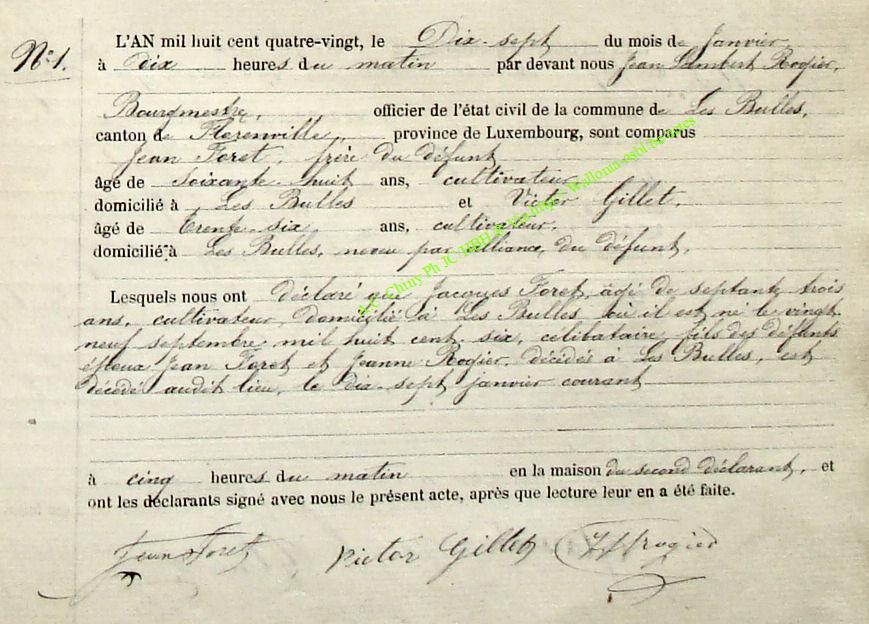 L'AN mil huit cent quatre-vingt, le Dix-sept du mois de Janvier
No 1. à dix heures du matin par devant nous Jean Lambert Rogier,
Bourgmestre, officier de l'état civil de la commune de Les Bulles,
canton de Florenville, province de Luxembourg, sont comparus
Jean Foret, frère du défunt
âgé de soixante-huit ans, cultivateur
domicilié à Les Bulles et Victor Gillet,
âgé de trente-six ans, cultivateur,
domicilié à Les Bulles, neveu par alliance, du défunt,
Lesquels nous ont déclaré que Jacques Foret, âgé de septante trois
ans, cultivateur, domicilié à Les Bulles où il est né le vingt-
neuf septembre mil huit cent-six, célibataire, fils des défunts
époux Jean Foret et Jeanne Rogier, décédés à Les Bulles, est
décédé audit lieu, le dix-sept janvier courant
à cinq heures du matin en la maison du second déclarant, et
ont les déclarants signé avec nous le présent acte, après que lecture leur en a été faite.
Jean Foret Victor Gillet JLRogier
A.C. Chiny Ph JC